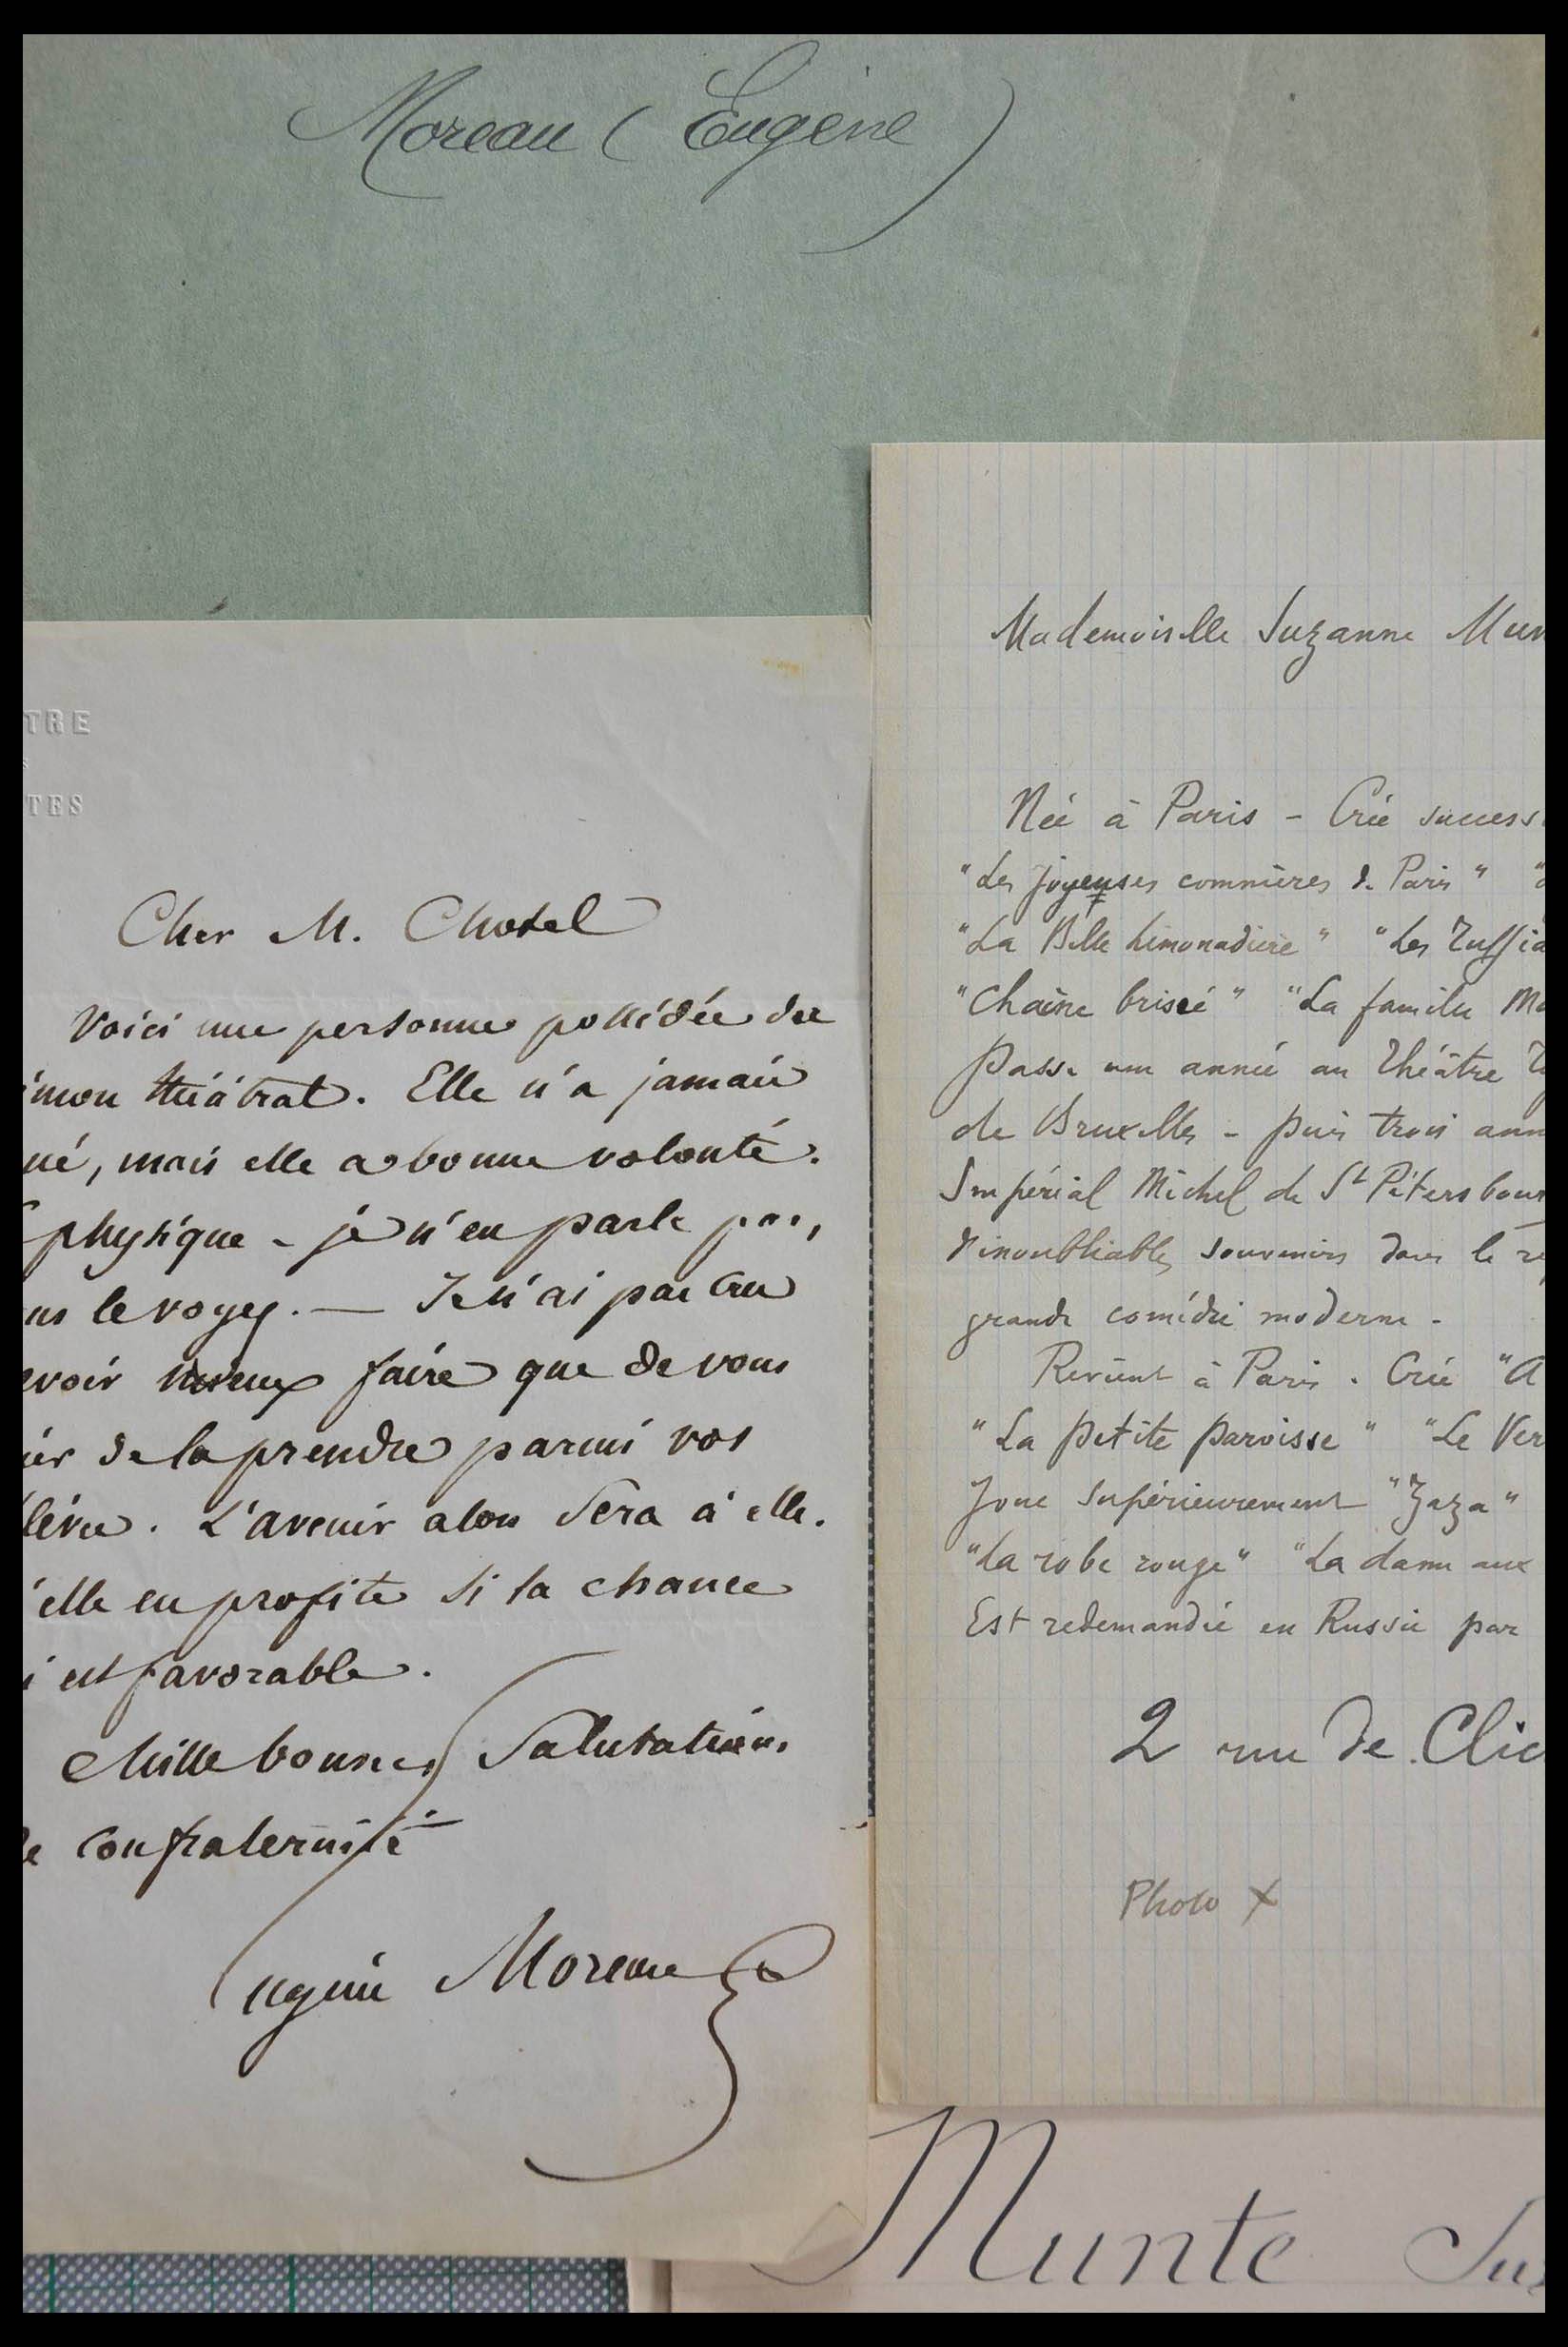 Moreau (Eugène)
TRE
TES
Cher M. Chotel
Voici une personne possédée du
émon théâtral. Elle n'a jamais
ué, mais elle a bonne volonté.
physique - je n'en parle pas,
us le voyez. — Je n'ai pas cru
evoir mieux faire que de vous
ier de la prendre parmi vos
lèves. L'avenir alors sera à elle.
'elle en profite si la chance
i est favorable.
Mille bonnes salutations
de confraternité
Eugène Moreau
Mademoiselle Suzanne Mun
Née à Paris - Crée success
"Les joyeuses commères de Paris"
"La Belle Limonadière" "Les Ruffia
"Chaîne brisée" "La famille Mo
Passe une année au Théâtre
de Bruxelles - puis trois ann
Impérial Michel de St Pétersbour
d'inoubliables souvenirs dans le ré
grande comédie moderne -
Revient à Paris. Crée "A
"La petite paroisse" "Le Ver
Joue supérieurement "Zaza"
"La robe rouge" "La dame aux
Est redemandée en Russie par
2 rue de Clic
Photo X
Munte Suz